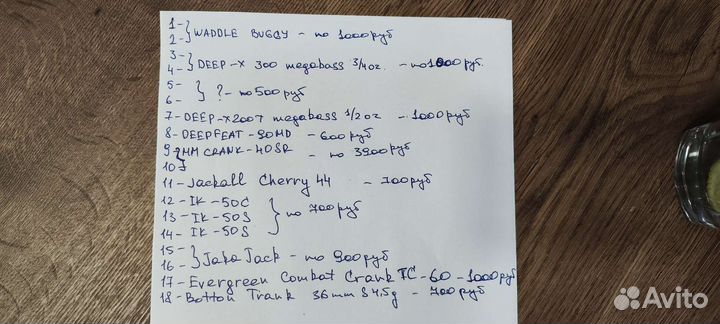 1 -
2 - } WADDLE BUGGY - по 1000 руб
3 -
4 - } DEEP-X 300 megabass 3/4 oz. - по 1000 руб.
5 -
6 - } ? - по 500 руб
7 - DEEP-X200T megabass 1/2 oz - 1000 руб
8 - DEEPFEAT-90MD - 600 руб
9 } MM CRANK-40SR - по 3900 руб
10 }
11 - Jackall Cherry 44 - 700 руб
12 - IK-50C
13 - IK-50S } по 700 руб
14 - IK-50S
15 -
16 - } Jako Jack - по 900 руб
17 - Evergreen Combat Crank TC-60 - 1000 руб
18 - Botton Trank 36mm S 4.5g - 700 руб
Avito